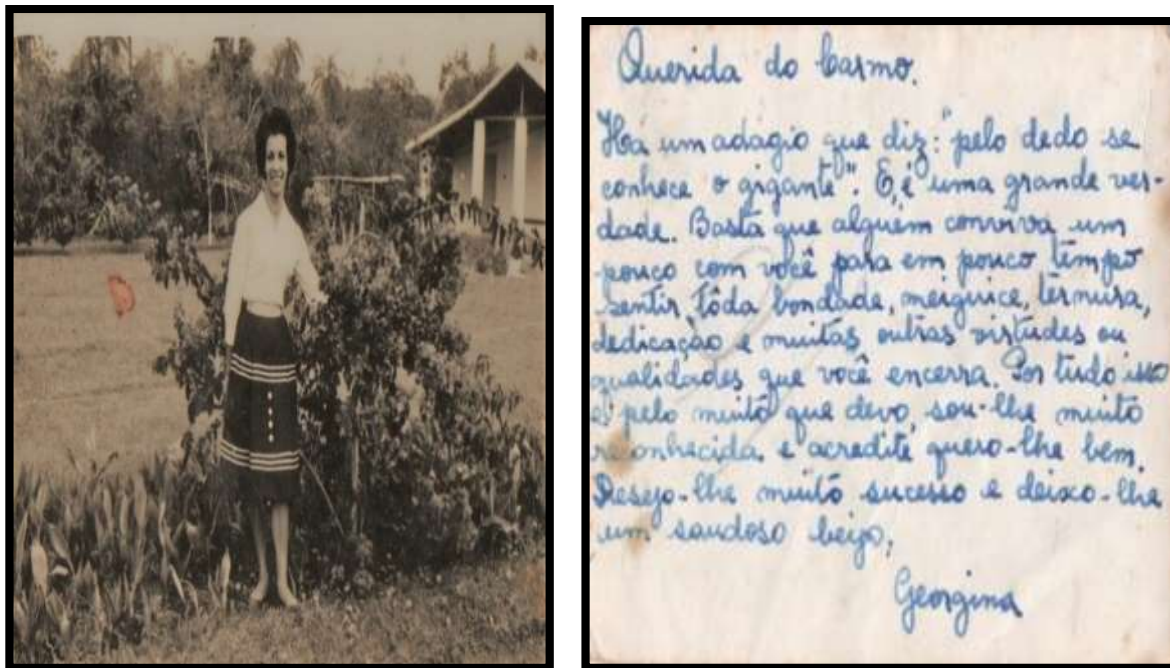 Querida do Carmo.
Há um adágio que diz: "pelo dedo se
conhece o gigante". E, é uma grande ver-
dade. Basta que alguém conviva um
pouco com você para em pouco tempo
sentir, tôda bondade, meiguice, ternura,
dedicação e muitas outras virtudes ou
qualidades que você encerra. Por tudo isso
e pelo muito que devo, sou-lhe muito
reconhecida e acredite quero-lhe bem.
Desejo-lhe muito sucesso e deixo-lhe
um saudoso beijo,
Georgina